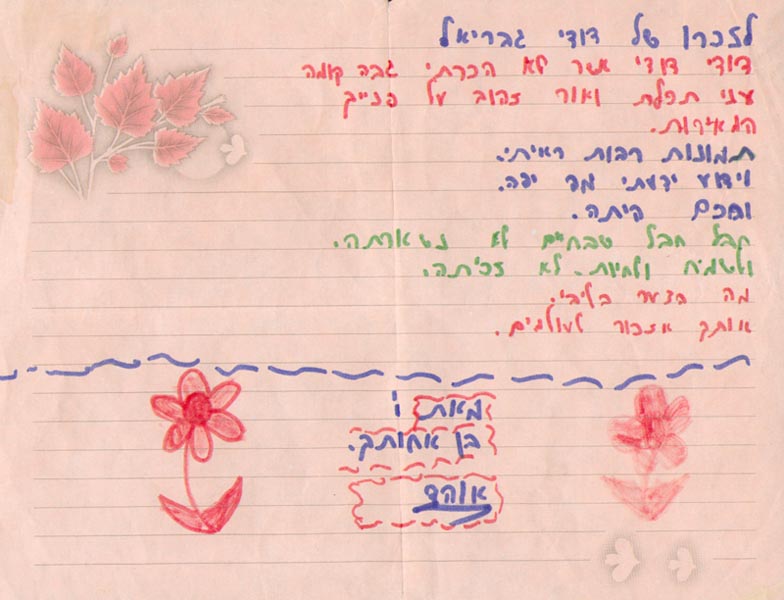 לזכרו של דודי גבריאל
דודי דודי אשר לא הכרתי גבה קומה
עני תכלת ואור זהוב על פנייך
המאירות.
תמונות רבות ראיתי.
וידוע ידעתי מה יפה.
וחכם היתה.
חבל חבל שבחיים לא נשארתה.
ולשמוח ולחיות. לא זכיתה.
מה הצער בליבי.
אותך אזכור לעולמים.
מאת:
בן אחותך.
אוהד